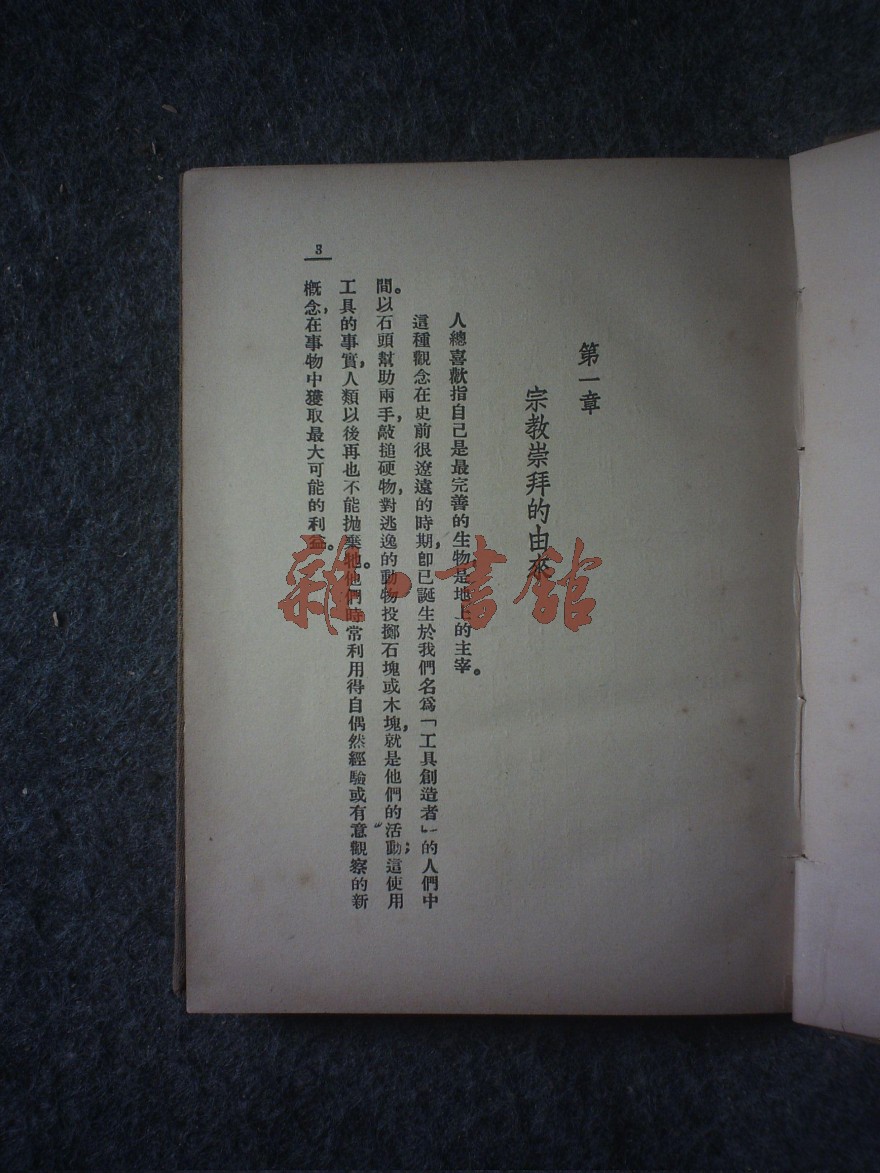 第一章
宗教崇拜的由來
人總喜歡指自己是最完善的生物是地上的主宰。
這種觀念在史前很遼遠的時期，卽已誕生於我們名爲「工具創造者」的人們中
間。以石頭幫助兩手，敲搥硬物，對逃逸的動物投擲石塊或木塊，就是他們的活動；這使用
工具的事實，人類以後再也不能拋棄牠。他們時常利用得自偶然經驗或有意觀察的新
概念，在事物中獲取最大可能的利益。
3
雜·書館